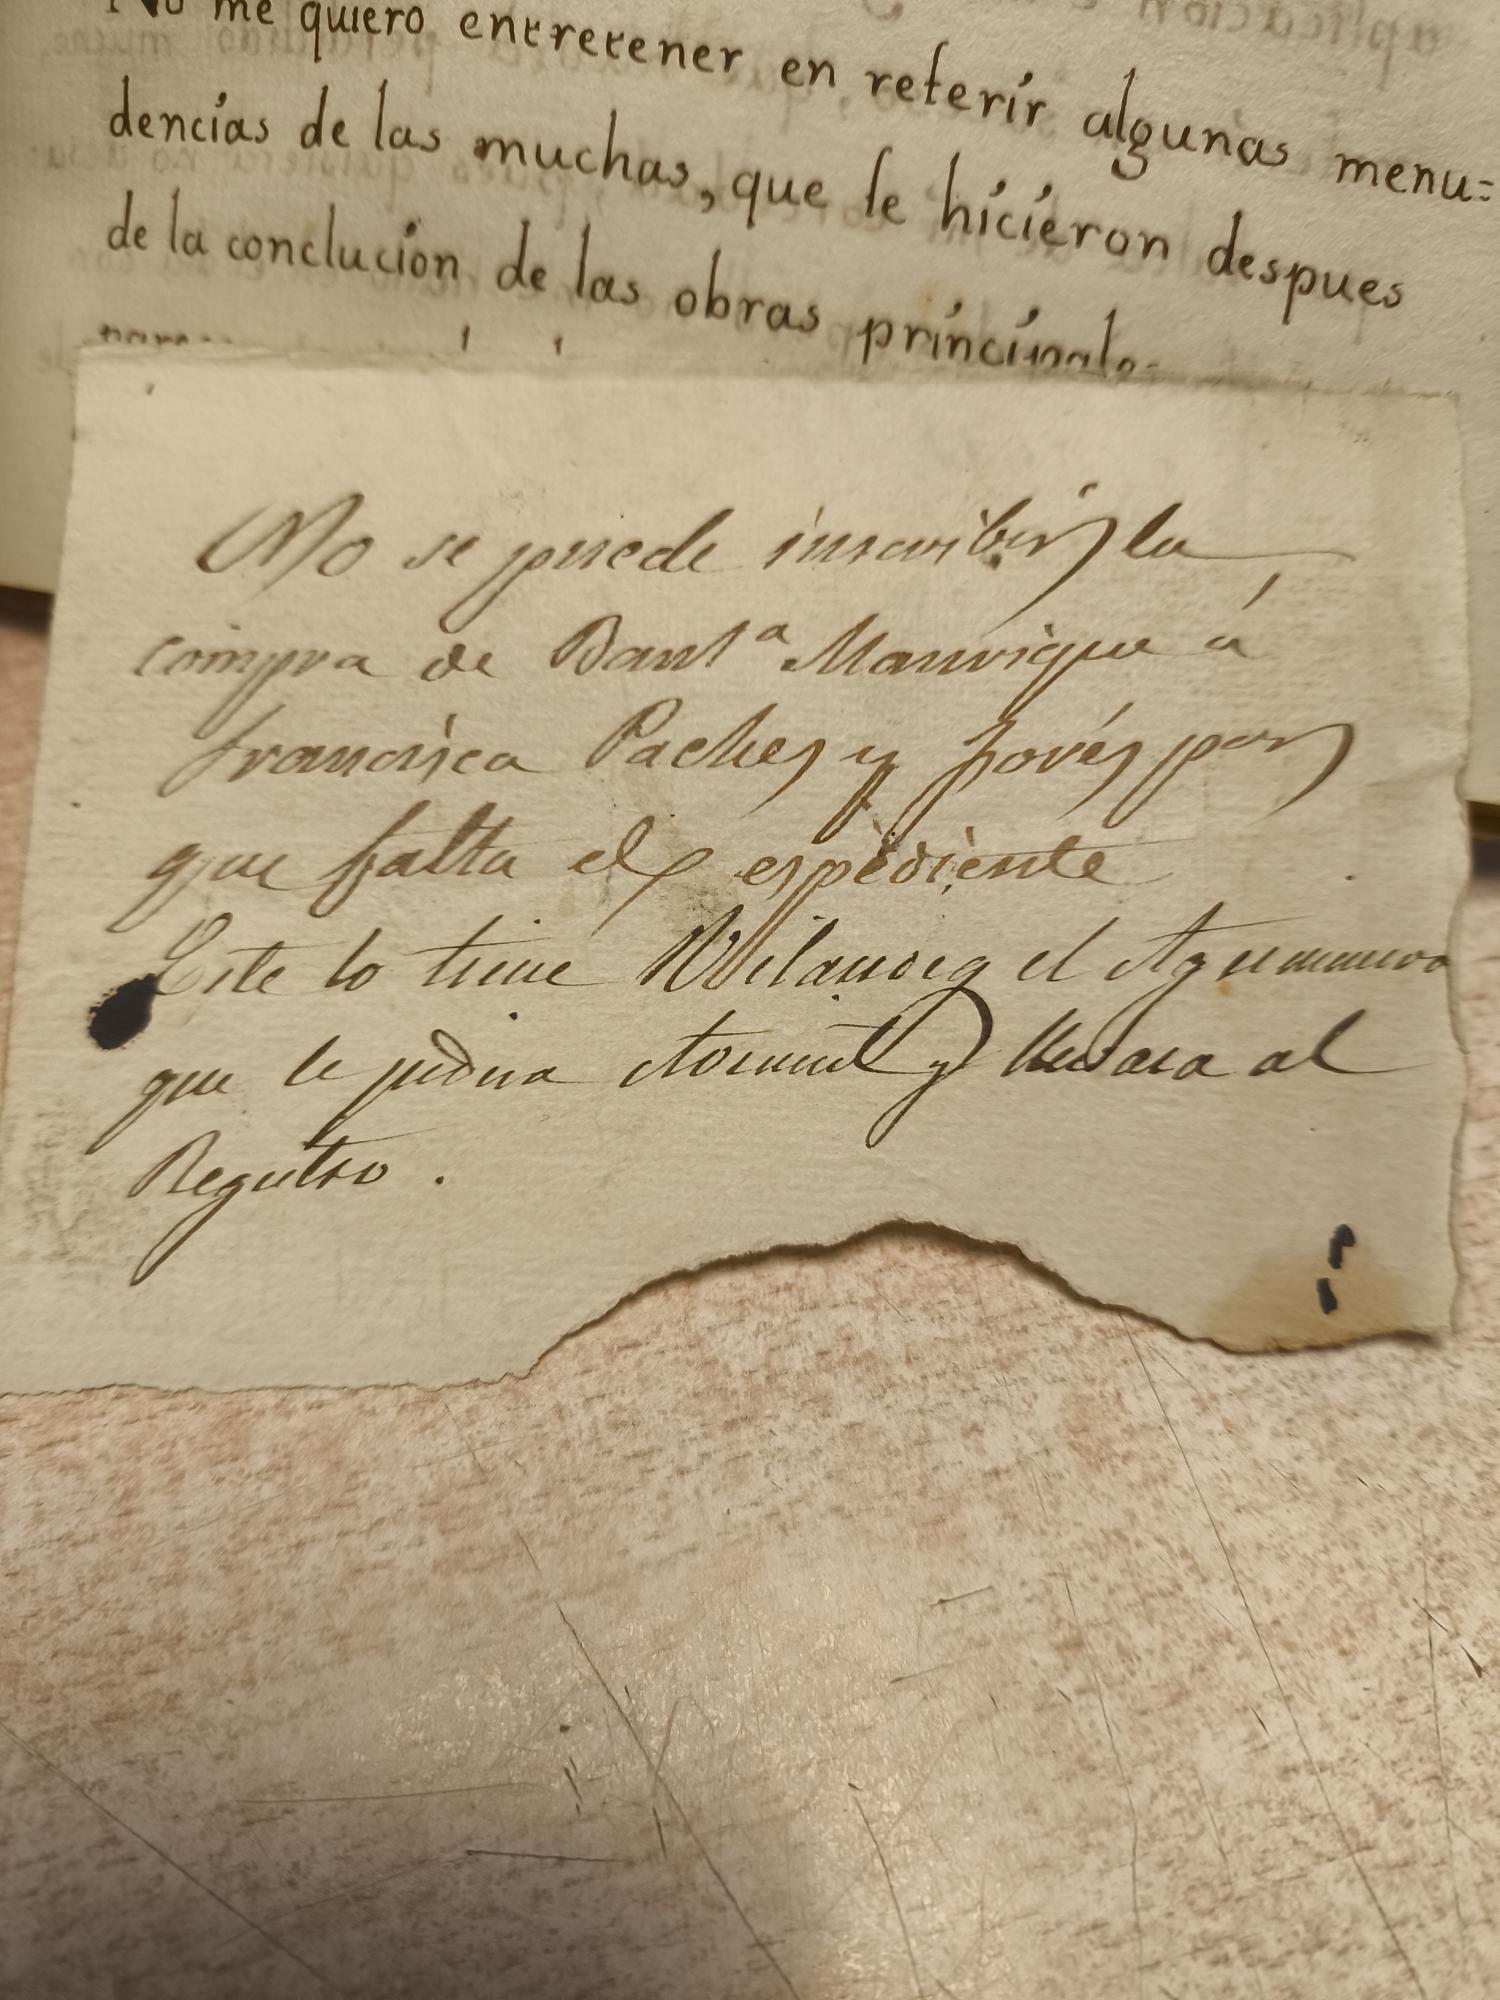 No me quiero entretener en referir algunas menu=
dencias de las muchas, que se hicieron despues
de la conclucion de las obras principales
No se puede inscribir la
compra de Baut.ª Manrique á
Francisca Paches y Jovés por
que falta el espediente
Este lo tiene el
que le pedira y llevara al
Registro.